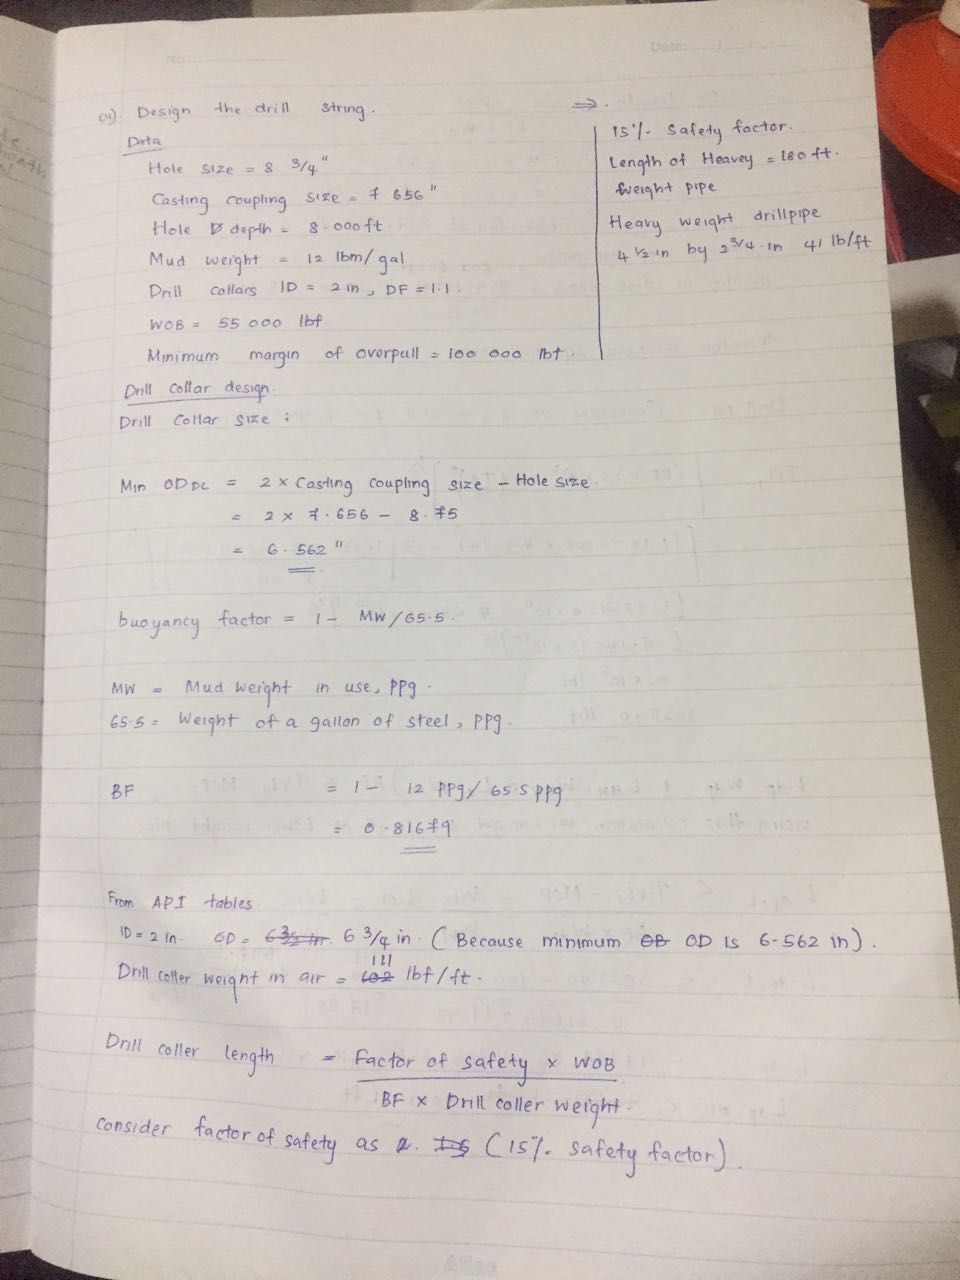 No:
Date:
01). Design the drill string.
Data
Hole size = 8 3/4"
Casting coupling size = 7 656"
Hole depth = 8.000ft
Mud weight = 12 lbm/gal
Drill collars ID = 2 in, DF = 1.1.
WOB = 55 000 lbf
Minimum margin of overpull = 100 000 lbf.
⇒.
15%. Safety factor.
Length of Heavey = 180 ft.
weight pipe
Heavy weight drillpipe
4 1/2 in by 2 3/4.in 41 lb/ft
Drill collar design.
Drill Collar size :
Min OD DC = 2 x Casting Coupling size - Hole size.
= 2 x 7.656 - 8.75
= 6.562"
buoyancy factor = 1- MW/65.5.
MW = Mud weight in use, PPg.
65.5 = Weight of a gallon of steel, PPg.
BF = 1- 12 PPg/65.5 PPg
= 0.81679
From API tables
ID = 2 in. OD = 6 3/4 in. (Because minimum OD is 6-562 in).
111
Drill coller weight in air = lbf/ft.
Drill coller length = Factor of safety x WOB
BF x Drill coller weight.
Consider factor of safety as (15%. safety factor).
Atlas